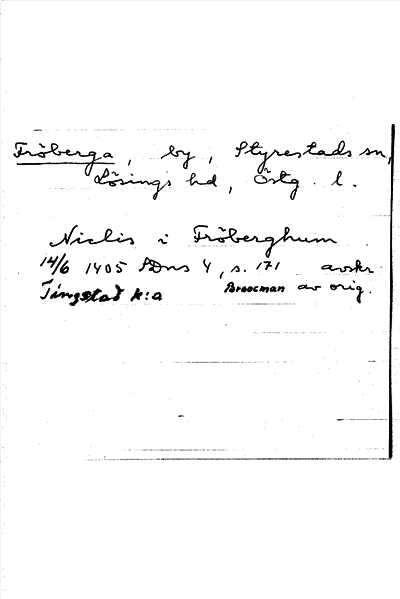 Fröberga, by, Styrestads sn,
Lösings hd, Östg. l.
Niclis i Fröberghum
14/6 1405 SDns 4, s. 171 avskr.
Tingstad k:a Broocman av orig.